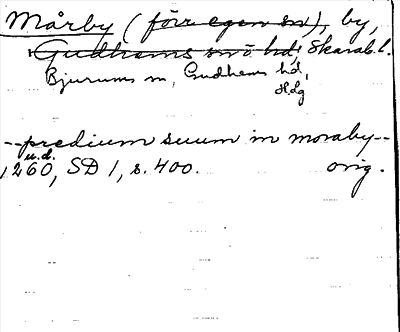 Mårby (förr egen sn), by,
Gudhems snö. hd, Skarab. l.
Bjurums sn, Gudhems hd,
Hdg
--predium suum in moraby--
u.d.
1260, SD 1, s. 400. orig.